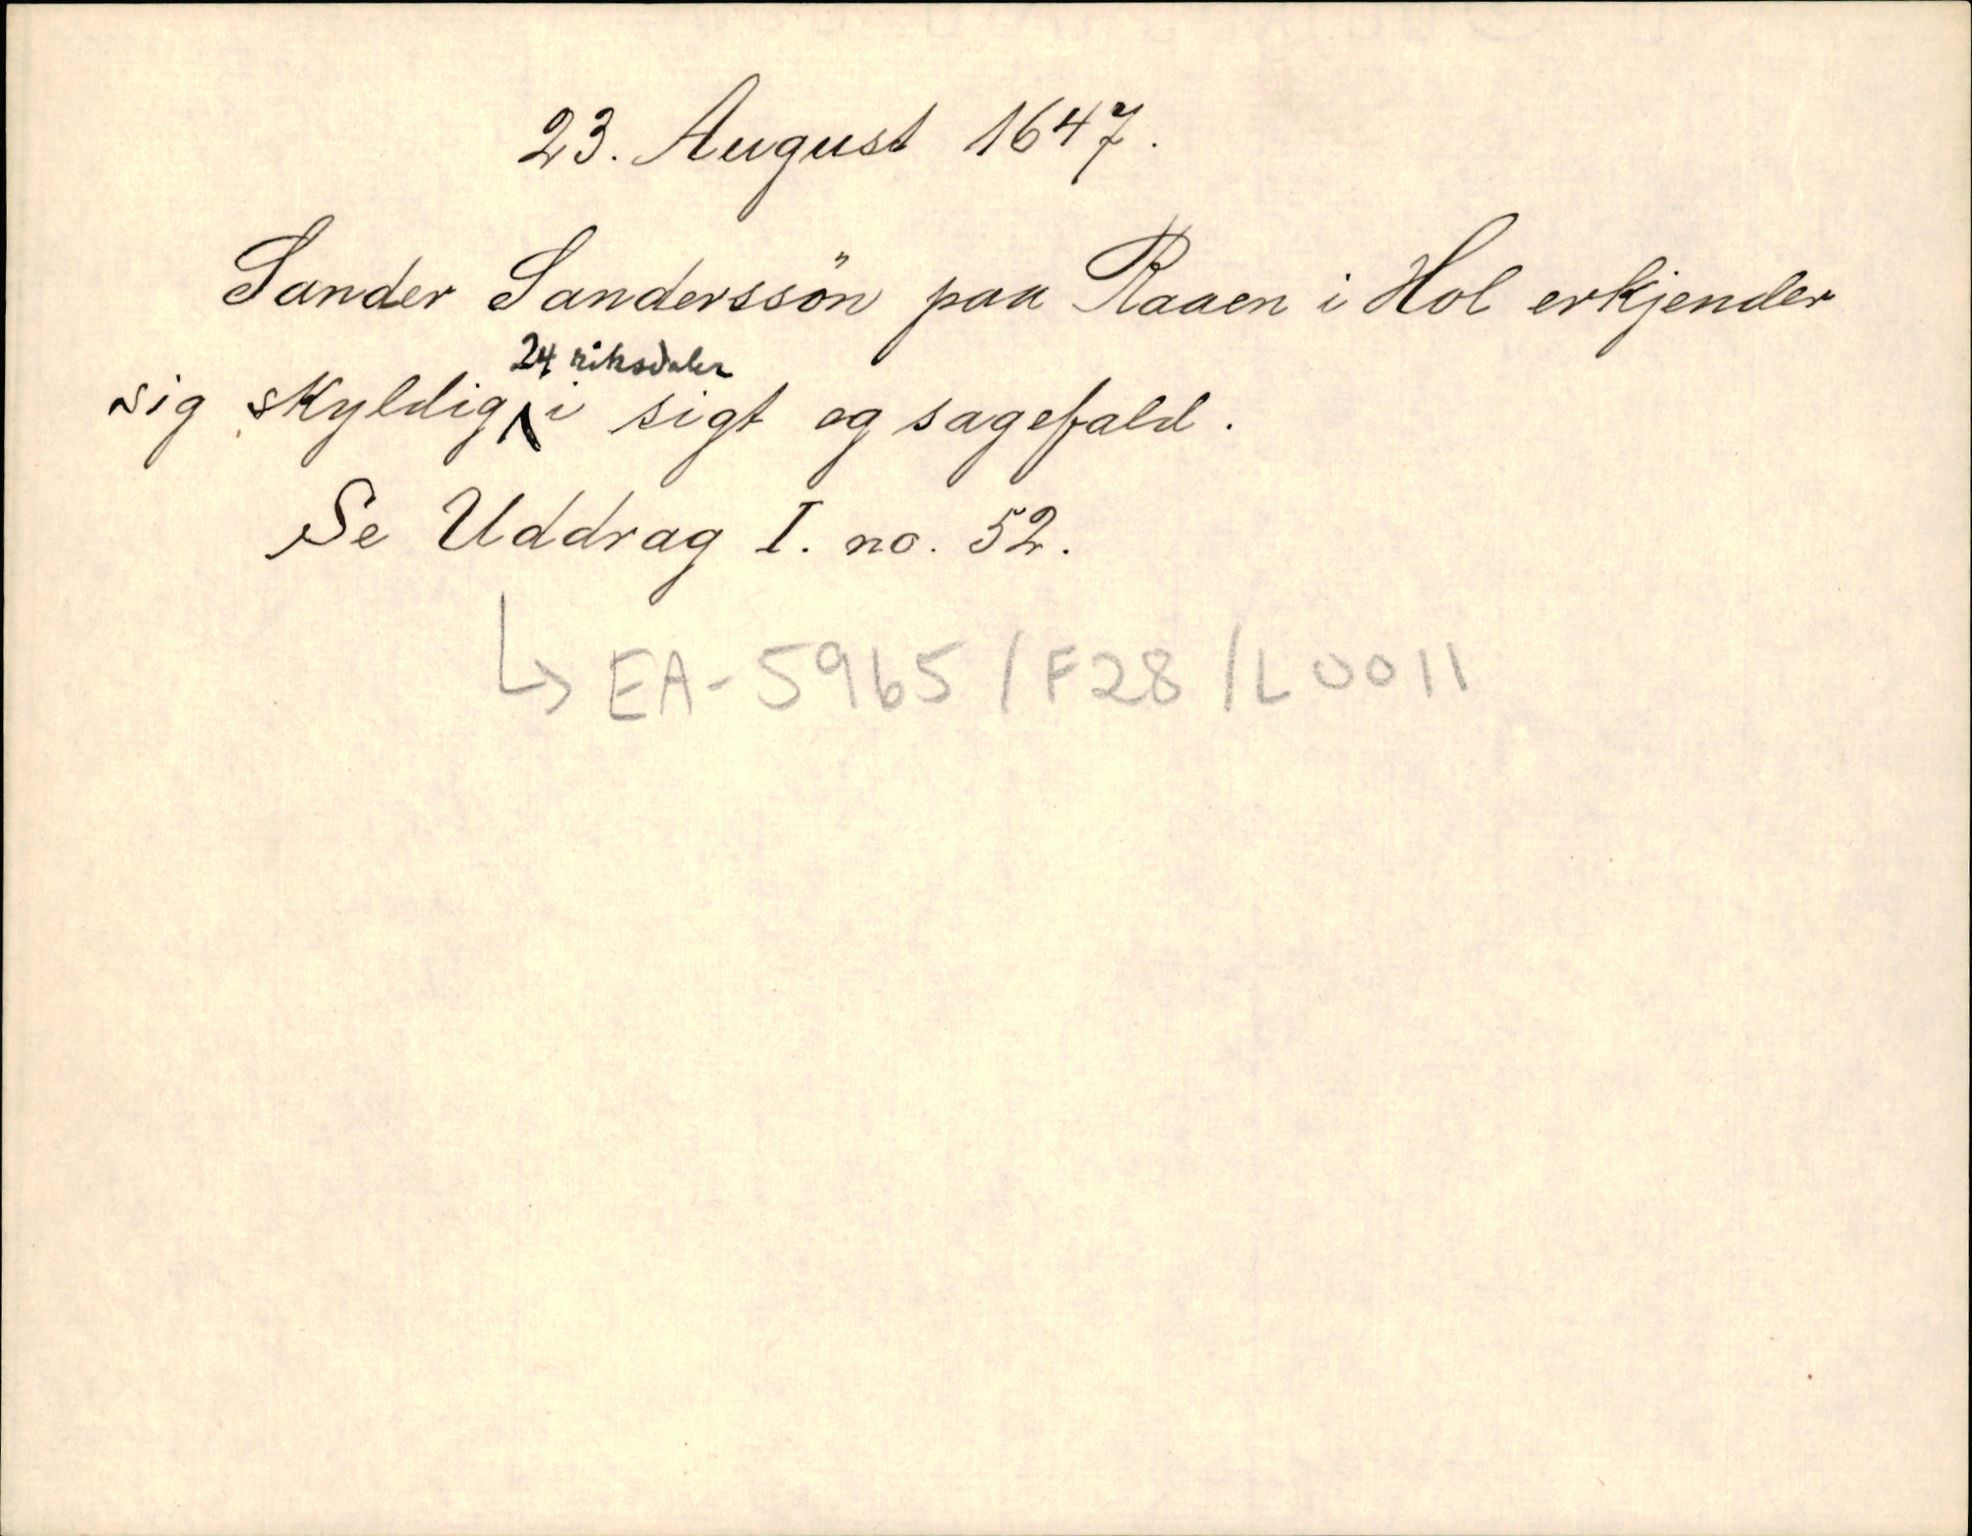 23. August 1647.
Sander Sanderssön paa Raaen i Hol erkjender
24 riksdaler
sig skyldig i sigt og sagefald.
Se Uddrag I. no. 52.
↳ EA-5965/F28/L0011